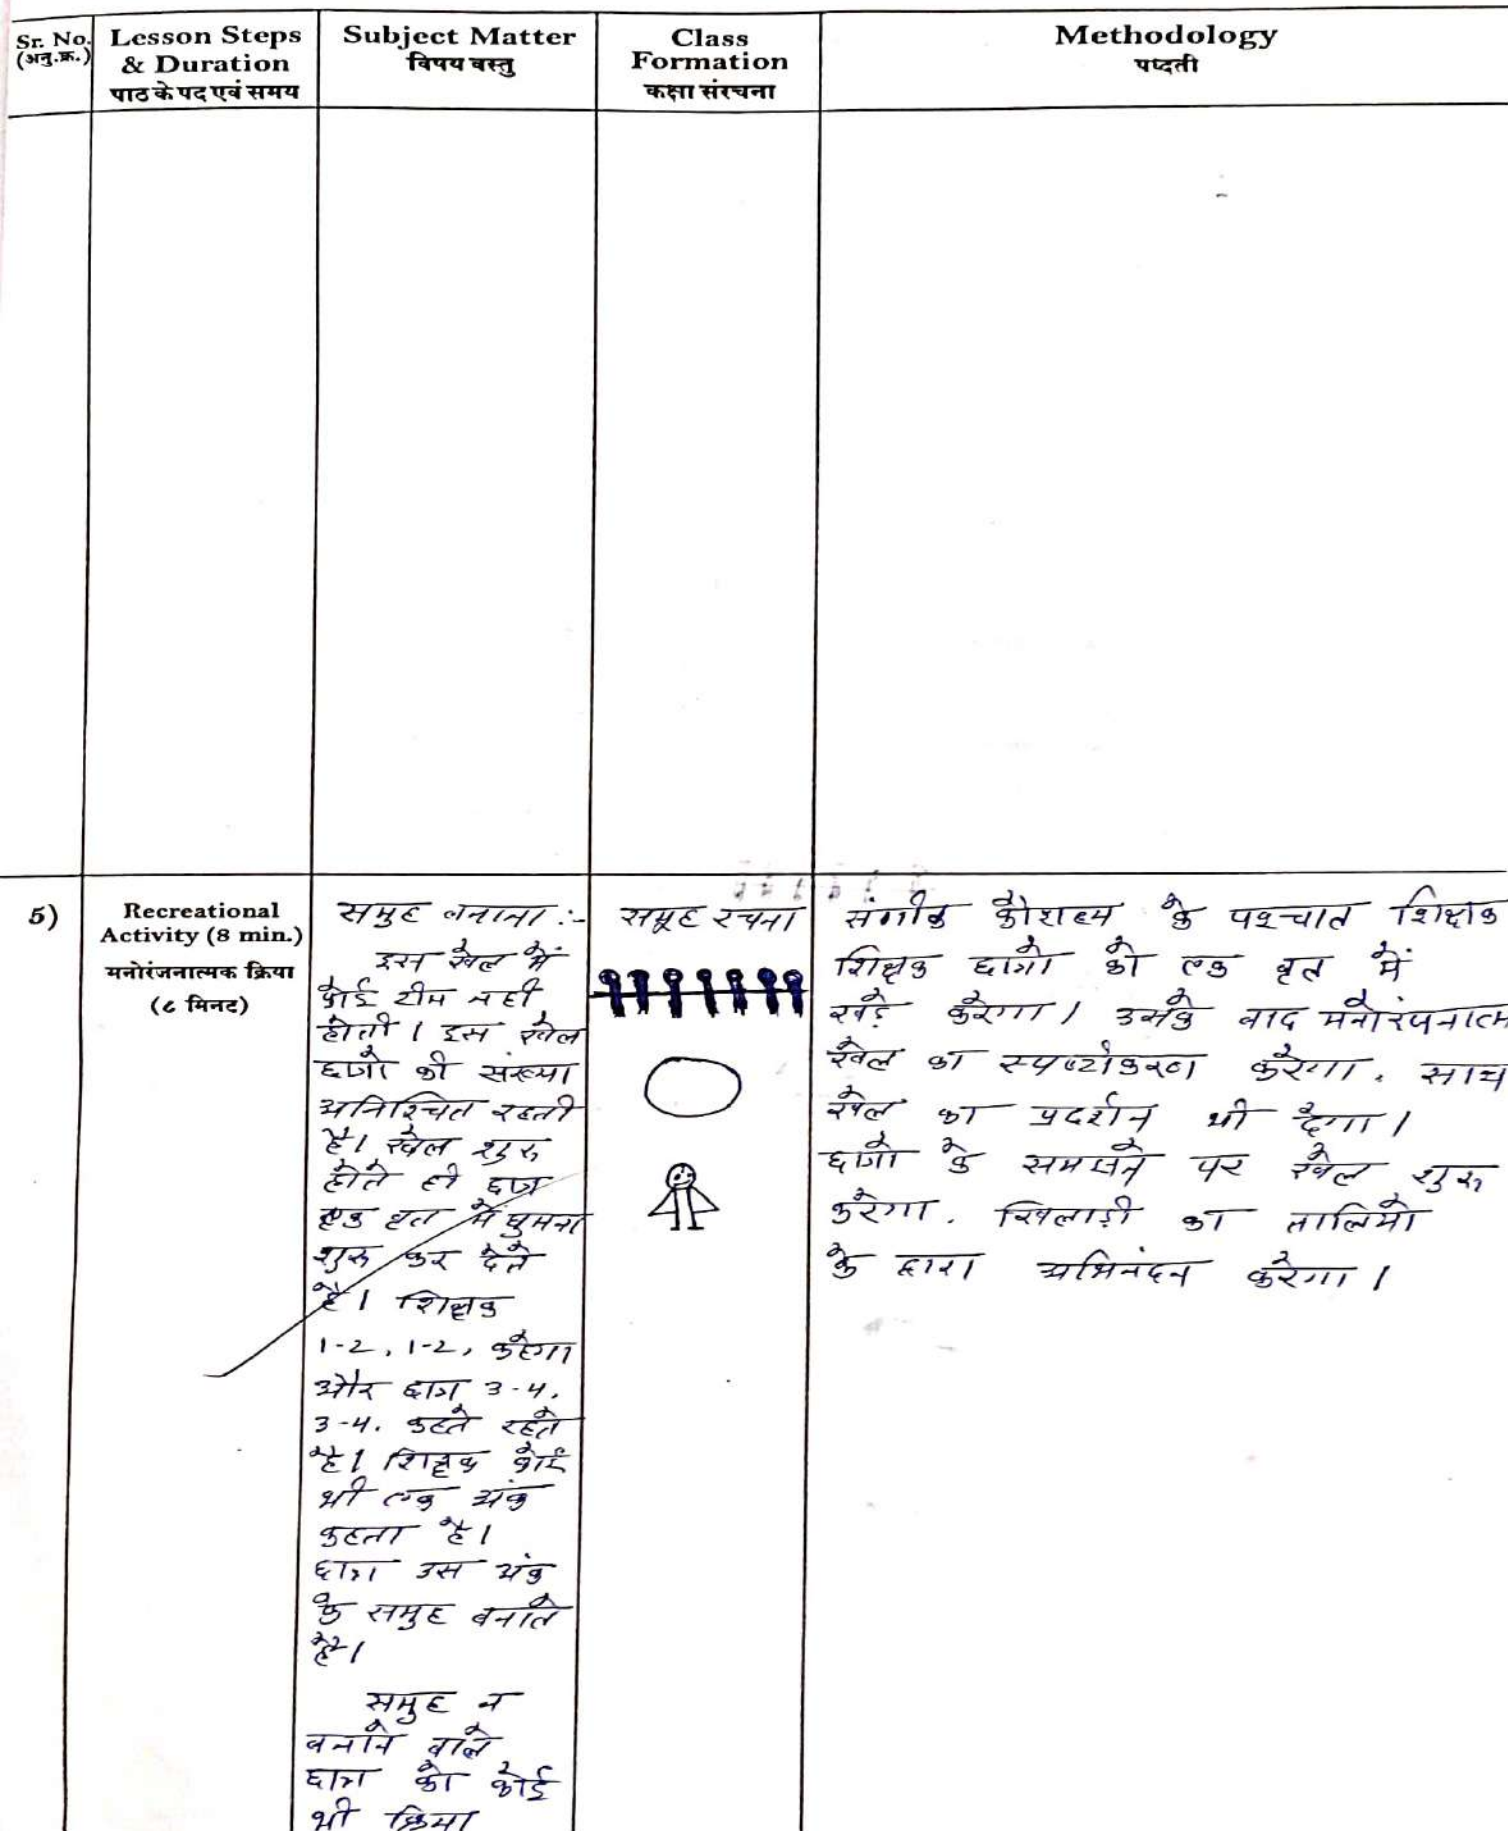 Sr. No.
(अनु.क्र.)
Lesson Steps
& Duration
पाठ के पद एवं समय
Subject Matter
विषय वस्तु
Class
Formation
कक्षा संरचना
Methodology
पध्दती
5)
Recreational
Activity (8 min.)
मनोरंजनात्मक क्रिया
(८ मिनट)
समुह बनाना :-
इस खेल में
कोई टीम नही
होती । इस खेल
छात्रो की संख्या
अनिश्चित रहती
है। खेल शुरु
होते ही छात्र
एक वृत में घुमना
शुरू कर देते
है। शिक्षक
1-2, 1-2, कहेगा
और छात्र 3-4.
3-4. कहते रहते
है। शिक्षक कोई
भी एक अंक
कहता है।
छात्र उस अंक
के समुह बनाते
है।
समुह न
बनाने वाले
छात्र को कोई
भी क्रिया
समूह रचना
के पश्चात शिक्षक
शिक्षक छात्रो को एक वृत में
खड़े करेगा। उसके बाद मनोरंजनात्म
खेल का स्पष्टीकरण करेगा. साथ
खेल का प्रदर्शन भी देगा।
छात्रो के समझने पर खेल शुरू
करेगा. खिलाड़ी का तालियो
के द्वारा अभिनंदन करेगा।